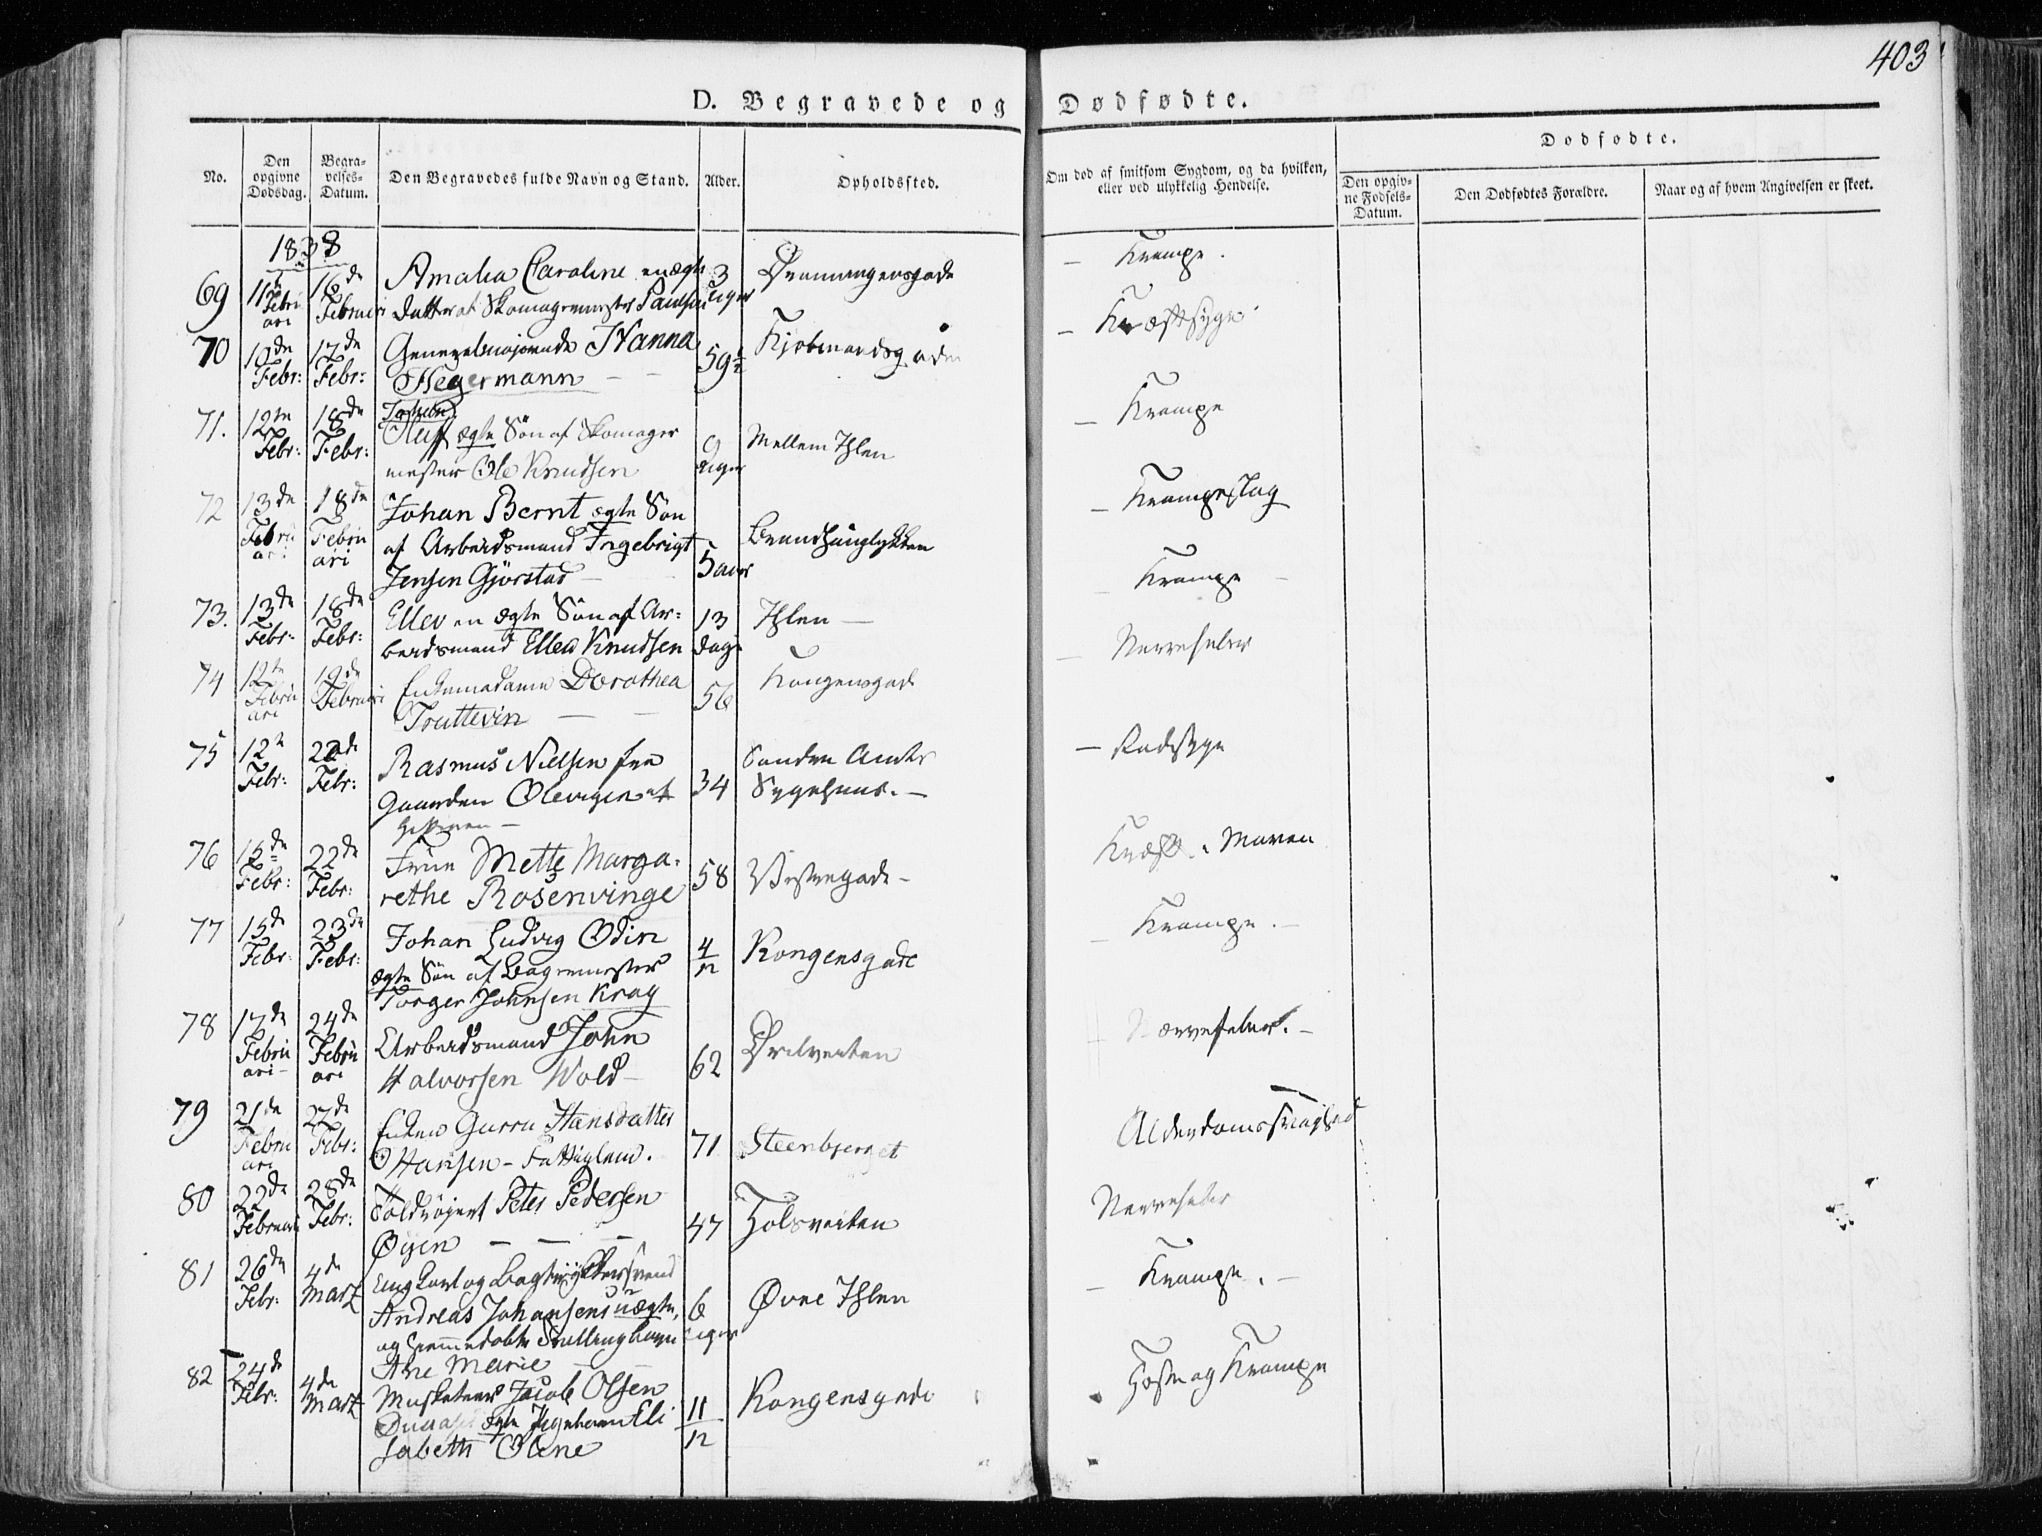 403
D. Begravede og Dødfødte.
No.
Den opgivne Dødsdag.
Begra-velses-Datum.
Den Begravedes fulde Navn og Stand.
Alder.
Opholdssted.
Om død af smitsom Sygdom, og da hvilken, eller ved ulykkelig Hendelse.
Dødfødte.
Den opgiv-ne Fødsels-Datum.
Den Dødfødtes Forældre.
Naar og af hvem Angivelsen er skeet.
1838
69 11te Februari 16de Februari Amalia Caroline en ægte 3 Dronningensgade – Krampe.
Datter af Skomagermester Paulsen Uger
70 10de Febr: 17de Febr: Generalmajorinde Hanna 59½ Kjøbmandsgaden – Kræftsyge
Hegermann
71. 12te Febr: 18de Febr: Oluf ægte Søn af Skomager 9 Uger Mellem Ihlen – Krampe
mester Ole Knudsen
72 13de Februari 18de Februari Johan Bernt ægte Søn – Krampeslag
af Arbeidsmand Ingebrigt 5 aar
Jensen Gjørstad
73. 13de Febr: 18de Febr: Ellev en ægte Søn af Ar= 13 Ihlen – Krampe
beidsmand Ellev Knudsen Dage
74 12te Februari 19de Februari Enkemadame Dorothea 56 Kongensgade – Nervefeber
Truttevin
75 12te Febr: 22de Febr: Rasmus Nielsen fra 34 Søndre Amts – Radesyge
Gaarden Olevigen
Sygehuus.
76 15de Febr: 22de Febr: Frue Mette Marga= 58 Vestregade Kræft i Maven
rethe Rosenvinge
77 15de Febr: 23de Febr: Johan Ludvig Odin 4/12 Kongensgade – Krampe.
ægte Søn af Bagermester
Torger Johnsen Krag
78 17de Februari 24de Februari Arbeidsmand John 62 Nervefeber.
Halvorsen Wold
79 21de Februari 27de Febr: Enken Gurru Hansdatter 71 Steenbjerget Alderdomssvaghed
Hansen – Fattiglem.
80 22de Februari 28de Febr: Peter Pedersen 47 Nervefeber
Øyen
81 26de Febr: 4de Martz Ungkarl og 6 Uger Øvre Ihlen – Krampe.
Andreas Johansens uægte,
og hiemmedøbte
Ane Marie
82 24de Febr: 4de Martz Musketeer Jacob Olsen 11/12 Kongensgade Hoste og Krampe
ægte Pigebarn Eli
sabeth Oline